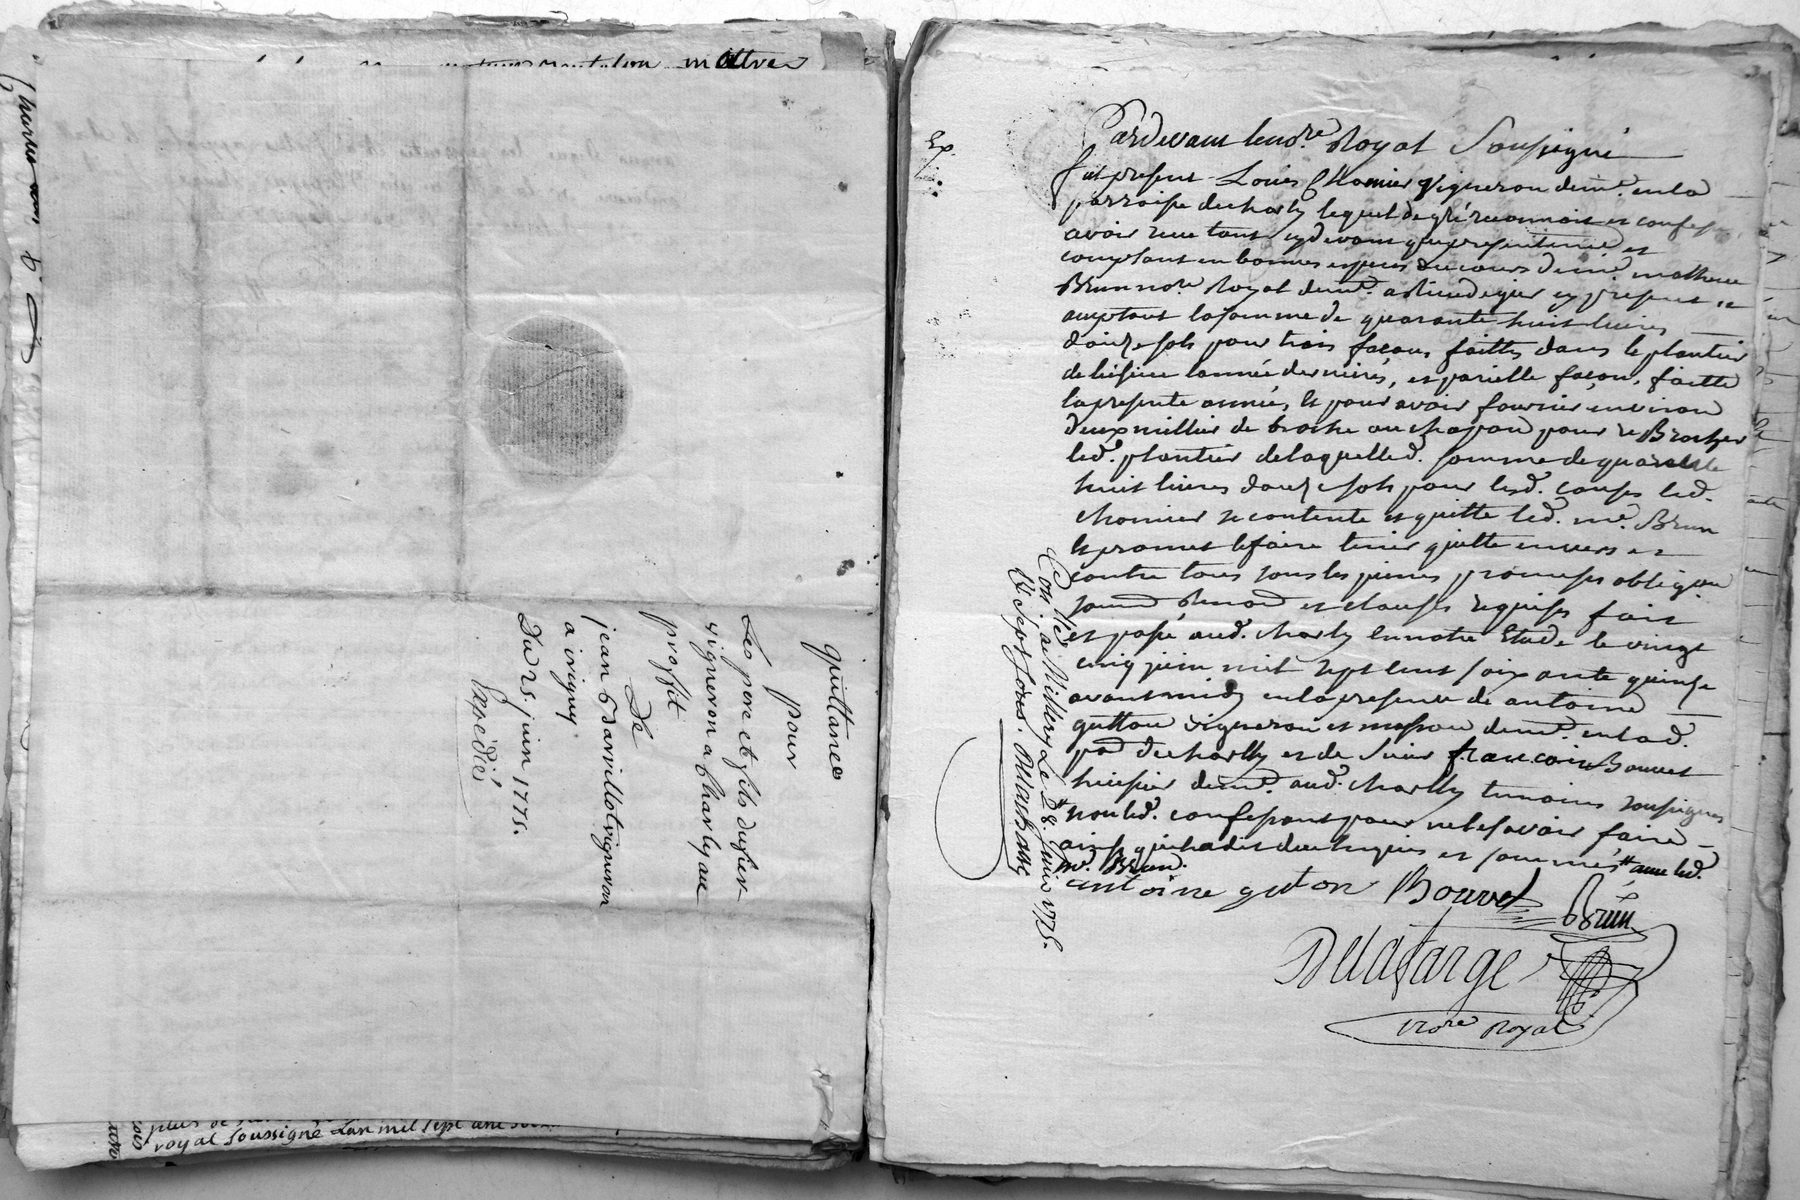 mattre
Charles
quittance
pour
Les pere et fils dufier
vigneron a Charly au
proffit
De
jean Darvillot vigneron
a irigny
Du 25. juin 1775.
Expédiée
plus de
royal soussigné Lan mil sept cent
Ex.
Pardevant le nore. Royal Soussigné
fut present Louis Chomier vigneron demt. en la
parroisse de charly lequel de gré reconnoit et confesse
avoir reçu tant cydevant que presentement et
comptant en bonnes especes de cours de me. mathieu
Brun nore. Royal demt. a st. icy present et
acceptant la somme de quarante huit livres
douze sols pour trois façons faittes dans le plantier
de l'année dernière, et pareille façon, faitte
la presente année, et pour avoir fourni environ
deux millier de broche ou chapon pour rebrocher
led. plantier de laquelle d. somme de quarante
huit livres douze sols pour lesd. causes led.
chomier se contente et quitte led. me. Brun
et promet le faire tenir quitte envers et
contre tous sous les peines promesses obligaon
soumd. renond. et clauses requises fait
et passé aud. charly en notre Etude le vingt
cinq juin mil sept cent soixante quinze
avant midy en la presence de antoine
gutton vigneron et masson demt. en lad.
psse de charly et de sieur francois Bouvet
huissier demt. aud. charly temoins soussignes
non led. confessant pour ne le savoir faire
ainsi qu'il a dit de ce enquis et sommés # avec led.
me. Brun.
antoine guton Bouvet Brun
Delafarge
nore Royal
Con.lé a Millery Le 28. Juin 1775.
R sept sous.